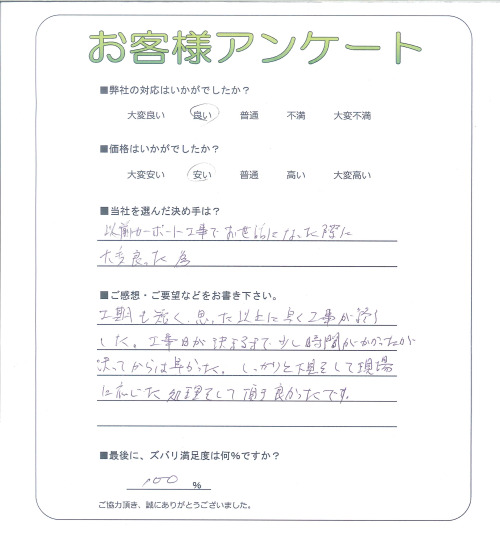 お客様アンケート
■弊社の対応はいかがでしたか？
大変良い 良い 普通 不満 大変不満
■価格はいかがでしたか？
大変安い 安い 普通 高い 大変高い
■当社を選んだ決め手は？
以前カーポート工事でお世話になった際に
大変良かった為
■ご感想・ご要望などをお書き下さい。
工期も短く、思った以上に早く工事が終りま
した。工事日が決まるまで少し時間がかかったが
決ってからは早かった。しっかりと下見をして現場
に応じた処理をして頂き良かったです。
■最後に、ズバリ満足度は何％ですか？
100 ％
ご協力頂き、誠にありがとうございました。